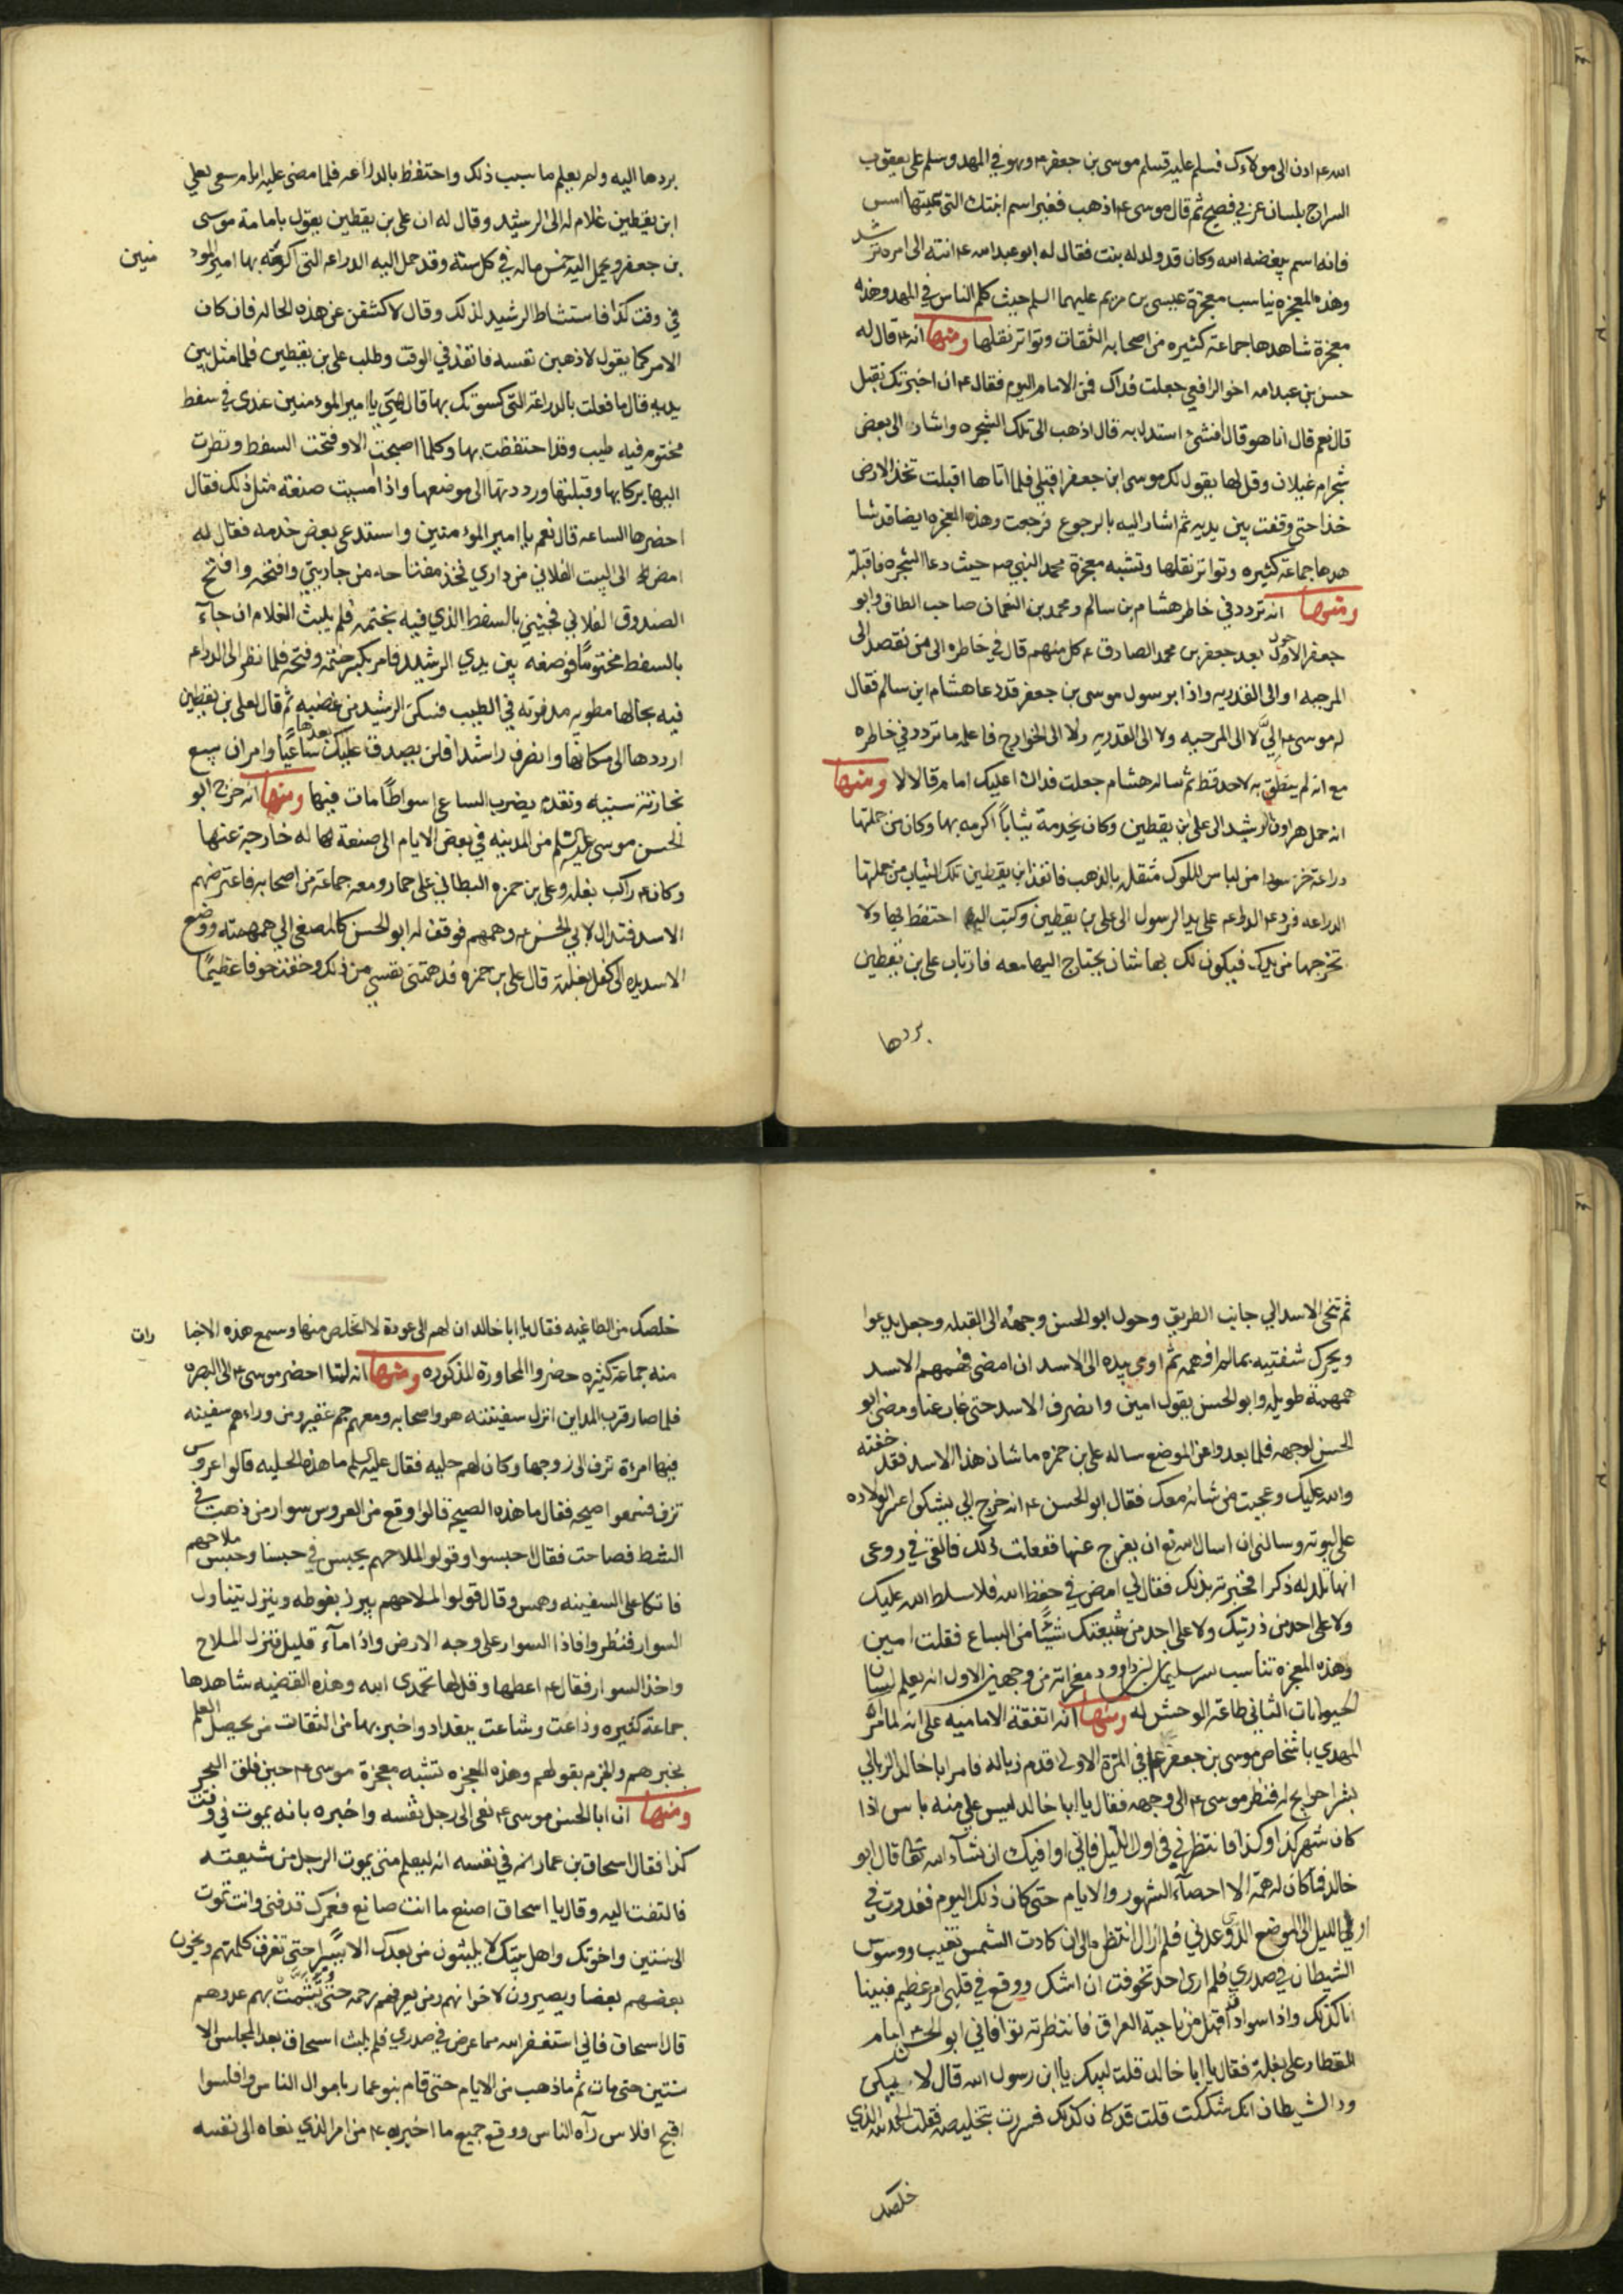 الله ۴ ادن الى مولاءك فسلم عليه فسلم موسى بن جعفر ۴ وهو في المهد وسلم على يعقوب
السراج بلسان عربي فصيح ثم قال موسى ۴ اذهب فغير اسم ابنتك التي سميتها امس
فانه اسم يبغضه الله وكان قد ولد له بنت فقال له ابو عبد الله ۴ انته الى امره ترشد
وهذه المعجزه يناسب معجزة عيسى بن مريم عليهما السلم حيث كلم الناس في المهد وهذه
معجزة شاهدها جماعة كثيره من اصحابه الثقات وتواتر نقلها ومنها انه ۴ قال له
حسن بن عبد الله اخو الرافعي جعلت فداك فمن الامام اليوم فقال ۴ ان اخبرتك تقبل
قال نعم قال انا هو قال فشئ استدل به قال اذهب الى تلك الشجره واشار الى بعض
شجر ام غيلان وقل لها يقول لك موسى ابن جعفر اقبلي فلما اتاها اقبلت تخذ الارض
خذا حتى وقفت بين يديه ثم اشار اليه بالرجوع فرجعت وهذه المعجزه ايضا قد شا
هدها جماعة كثيره وتواتر نقلها وتشبه معجزة محمد النبي ص حيث دعا الشجره فاقبلة
ومنها انه تردد في خاطر هشام بن سالم ومحمد بن النعمان صاحب الطاق وابو
جعفر الاحول بعد جعفر بن محمد الصادق ۴ كل منهم قال في خاطره الى من نقصد الى
المرجبه او الى القدريه واذا برسول موسى بن جعفر قد دعا هشام ابن سالم فقال
له موسى ۴ اليّ لا الى المرجبه ولا الى القدريه ولا الى الخوارج فاعلمه ما تردد في خاطره
مع انه لم ينطق به لاحد قط ثم ساله هشام جعلت فداك اعليك امام قال لا ومنها
انه حمل هراون الرشيد الى على بن يقطين وكان يخدمة ثياباً اكرمه بها وكان من جملتها
دراعة خز سودا من لباس الملوك مثقله بالذهب فانفذ ابن يقطين تلك الثياب من جملتها
الدراعه فرد ۴ الدراعه على يد الرسول الى على بن يقطين وكتب اليه احتفظ بها ولا
تخرجها من يدك فيكون لك بها شان يحتاج اليها معه فارتاب على بن يقطين
بردها
بردها اليه ولم يعلم ما سبب ذلك واحتفظ بالدراعه فلما مضى عليه ايام سعى بعلي
ابن يقطين غلام له الى الرشيد وقال له ان على بن يقطين يقول بامامة موسى
بن جعفر ويحمل اليه خمس ماله في كل سنة وقد حمل اليه الدراعه التي اكرمته بها امير المو
منين
في وقت كذا فاستشاط الرشيد لذلك وقال لاكشفن عن هذه الحاله فان كان
الامر كما يقول لاذهبن نفسه فانفذ في الوقت وطلب على بن يقطين فلما مثل بين
يديه قال ما فعلت بالدراعة التي كسوتك بها قال هي يا امير المومنين عندي في سفط
مختوم فيه طيب وقد احتفظت بها وكلما اصبحت الا وفتحت السفط ونظرت
اليها بركا بها وقبلتها ورددتها الى موضعها واذا امسيت صنعة مثل ذلك فقال
احضرها الساعه قال نعم يا امير المومنين واستدعى بعض خدمه فقال له
امض الى البيت الفلاني من داري فخذ مفتاحه من جاريتي وافتحه وافتح
الصندوق الفلاني فجيئني بالسفط الذي فيه بختمه فلم يلبث الغلام ان جآء
بالسفط مختوماً فوضعه بين يدي الرشيد فامر بكسر ختمه وفتحه فلما نظر الى الدراعه
فيه بحالها مطويه مدفونه في الطيب فسكن الرشيد من غضبه ثم قال لعلى بن يقطين
ارددها الى مكانها وانصرف راشدا فلن يصدق عليك بعدها ساعيًا وامر ان يتبع
بجائزة سنيه وتقدم بضرب الساعي اسواطًا مات فيها ومنها انه خرج ابو
الحسن موسى عليه السلم من المدينه في بعض الايام الى صنعة له خارجة عنها
وكان ۴ راكب بغله وعلى بن حمزه البطاني على حمار ومعه جماعة من اصحابه فاعترضهم
الاسد فتذلل لابي الحسن ۴ وهمهم فوقف له ابو الحسن كالمصغي الى همهمته ووضع
الاسد يده الى كفل بغلته قال على بن حمزه قد همتنى نفسي من ذلك وخفت خوفا عظيمًا
ثم تنحى الاسد الي جانب الطريق وحول ابو الحسن وجهه الى القبله وجعل يدعوا
ويحرك شفتيه بما لم افهمه ثم اومى بيده الى الاسد ان امضى فهمهم الاسد
همهمة طويله وابو الحسن يقول امين وانصرف الاسد حتى غاب عنا ومضى ابو
الحسن لوجهه فلما بعدوا عن الموضع ساله على بن حمزه ما شان هذا الاسد فقد خفته
والله عليك وعجبت من شانه معك فقال ابو الحسن ۴ انه خرج الي يشكوا عسر الولاده
على لبوته وسالني ان اسال الله تع ان يفرج عنها ففعلت ذلك فالقي في روعى
انها تلد له ذكرا فخبرته بذلك فقال لي امض في حفظ الله فلا سلط الله عليك
ولا على احد من ذريتك ولا على احد من شيعتك شيئًا من السباع فقلت امين
وهذه المعجزه تناسب سر سليمان بن داوود معجزاته من وجهين الاول انه يعلم لسان
الحيوانات الثاني طاعة الوحش له ومنها انه اتفقة الاماميه على انه لما امر
المهدي باشخاص موسى بن جعفر ۴ في المرة الاولى قدم زباله فامر ابا خالد الزبالي
بشرا حوايج له فنظر موسى ۴ الى وجهه فقال يا ابا خالد ليس علي منه باس اذا
كان شهر كذا وكذا فانتظرني في اول الليل فاني اوافيك ان شآء الله تعالى قال ابو
خالد فما كان له همة الا احصآء الشهور والايام حتى كان ذلك اليوم فغدوت في
اول الليل الى الموضع الذي وعدني فلم ازل انتظره الى ان كادت الشمس تغيب ووسوس
الشيطان في صدري فلم ارى احد فخوفت ان اشك ووقع في قلبي امر عظيم فبينا
انا كذلك واذا سواد قد اقبل من ناحية العراق فانتظرته فوافاني ابو الحسن ۴ امام
القطار على بغلة فقال يا ابا خالد قلت لبيك يا ابن رسول الله قال لا تشكن
ود الشيطان انك شككت قلت قد كان كذلك فسررت بتخليصه فقلت الحمد لله الذي
خلصك
خلصك من الطاغيه فقال يا ابا خالد ان لهم الى عودة لا اتخلص منها وسمع هذه الاخبا
رات
منه جماعة كثيره حضروا المحاورة المذكوره ومنها انه لما احضر موسى ۴ الى البصره
فلما صار قرب المداين انزل سفينته هو واصحابه ومعهم جم غفير ومن وراءهم سفينه
فيها امرءة تزف الى زوجها وكان لهم جلبه فقال عليه السلم ما هذه الجلبه قالوا عروس
تزف فسمعوا صيحه فقال ما هذه الصيحه قالوا وقع من العروس سوار من ذهب في
الشط فصاحت فقال احبسوا وقولوا لملاحهم يحبس في حبسنا وحبس ملاحهم
فاتكا على السفينه وهمس وقال قولوا لملاحهم يبرز بفوطه وينزل يتناول
السوار فنظروا فاذا السوار على وجه الارض واذا مآء قليل فنزل الملاح
واخذ السوار فقال ۴ اعطها وقل لها تحمدى الله وهذه القضيه شاهدها
جماعة كثيره وذاعت وشاعت ببغداد واخبر بها من الثقات من يحصل العلم
بخبرهم والجزم بقولهم وهذه المعجزه تشبه معجزة موسى ۴ حين فلق البحر
ومنها ان ابا الحسن موسى ۴ نعى الى رجل نفسه واخبره بانه يموت في وقت
كذا فقال اسحاق بن عمار انه في نفسه انه ليعلم متى يموت الرجل من شيعته
فالتفت اليه وقال يا اسحاق اصنع ما انت صانع فعمرك قد فنى وانت تموت
الى سنتين واخوتك واهل بيتك لا يلبثون من بعدك الا يسيرا حتى تفرق كلمتهم ويخون
بعضهم بعضا ويصيرون لاخوانهم ومن يعرفهم رحمه حتى يشمت بهم عدوهم
قال اسحاق فاني استغفر الله مما عرض في صدري فلم يلبث اسحاق بعد المجلس الا
سنتين حتى مات ثم ما ذهب من الايام حتى قام بنو عمار باموال الناس وافلسوا
اقبح افلاس رآه الناس ووقع جميع ما اخبر به ۴ من امر الذي نعاه الى نفسه